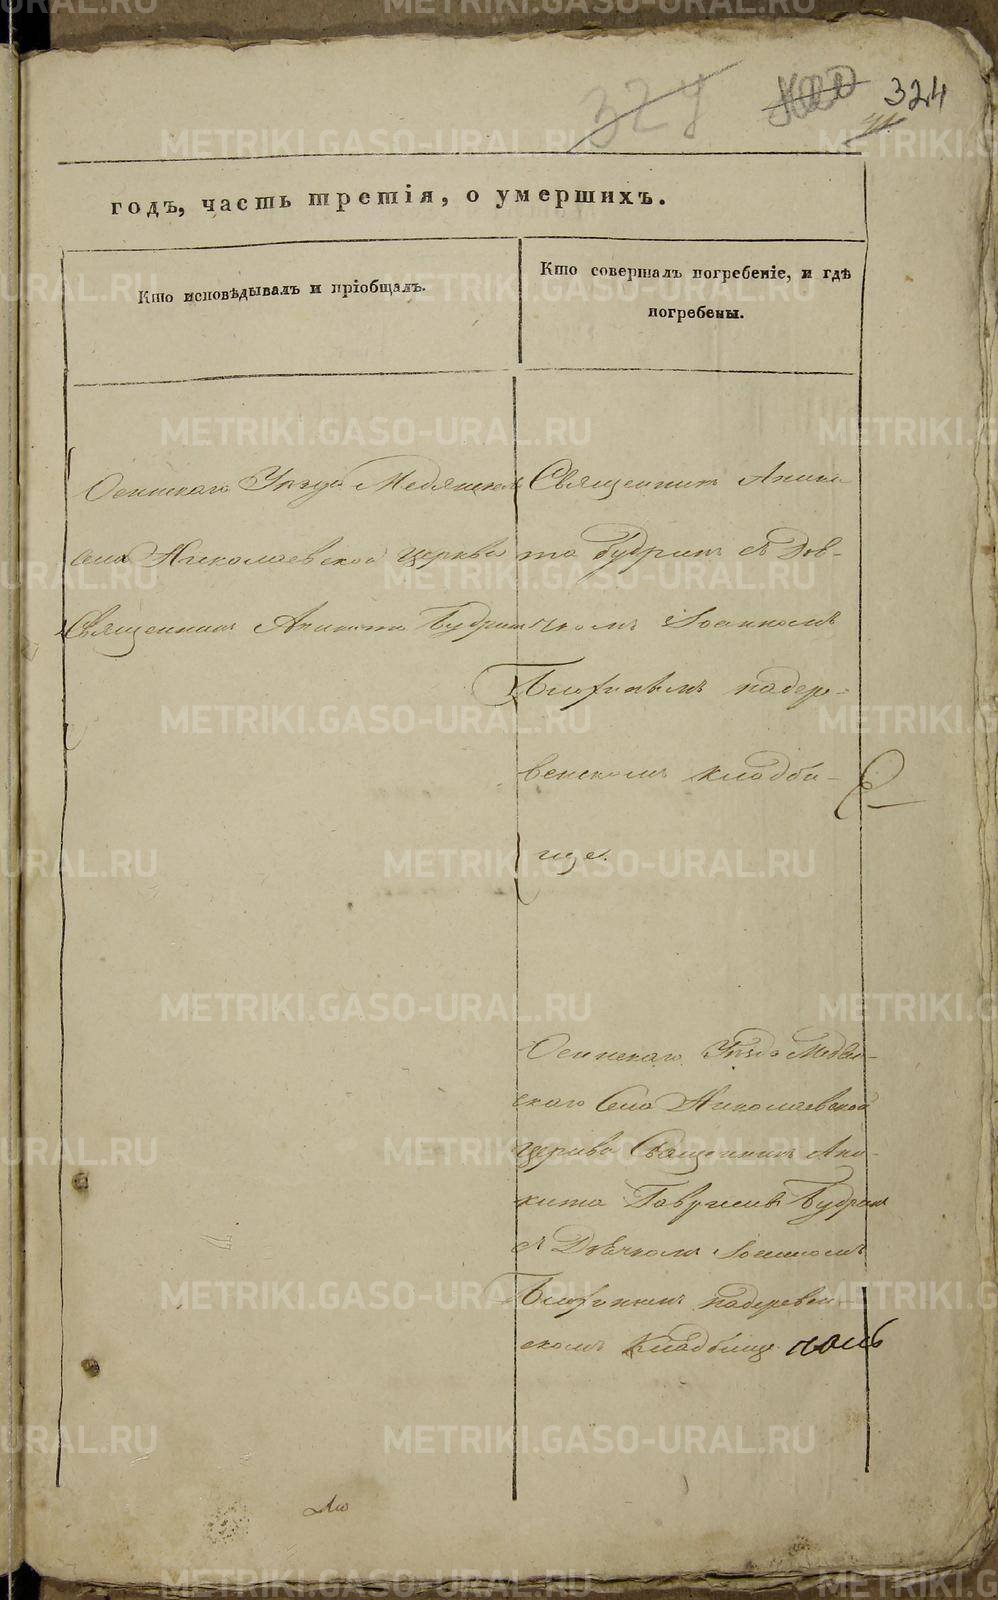 324
324
годъ, часть третія, о умершихъ.
Кто исповѣдывалъ и пріобщалъ.
Кто совершалъ погребеніе, и гдѣ
погребены.
Осинскаго Уѣзда Медянскаго
села Николаевской церкви
Священникъ Аникита Будринъ
Священникъ Аники-
та Будринъ съ Дья-
чкомъ Іоанномъ
надере-
венскомъ кладби-
ще.
Осинскаго Уѣзда Медян-
скаго Села Николаевской
церкви Священникъ Ани-
кита Гавриловъ Будринъ
съ Дьячкомъ Іоанномъ
надеревен-
скомъ Кладбище
METRIKI.GASO-URAL.RU